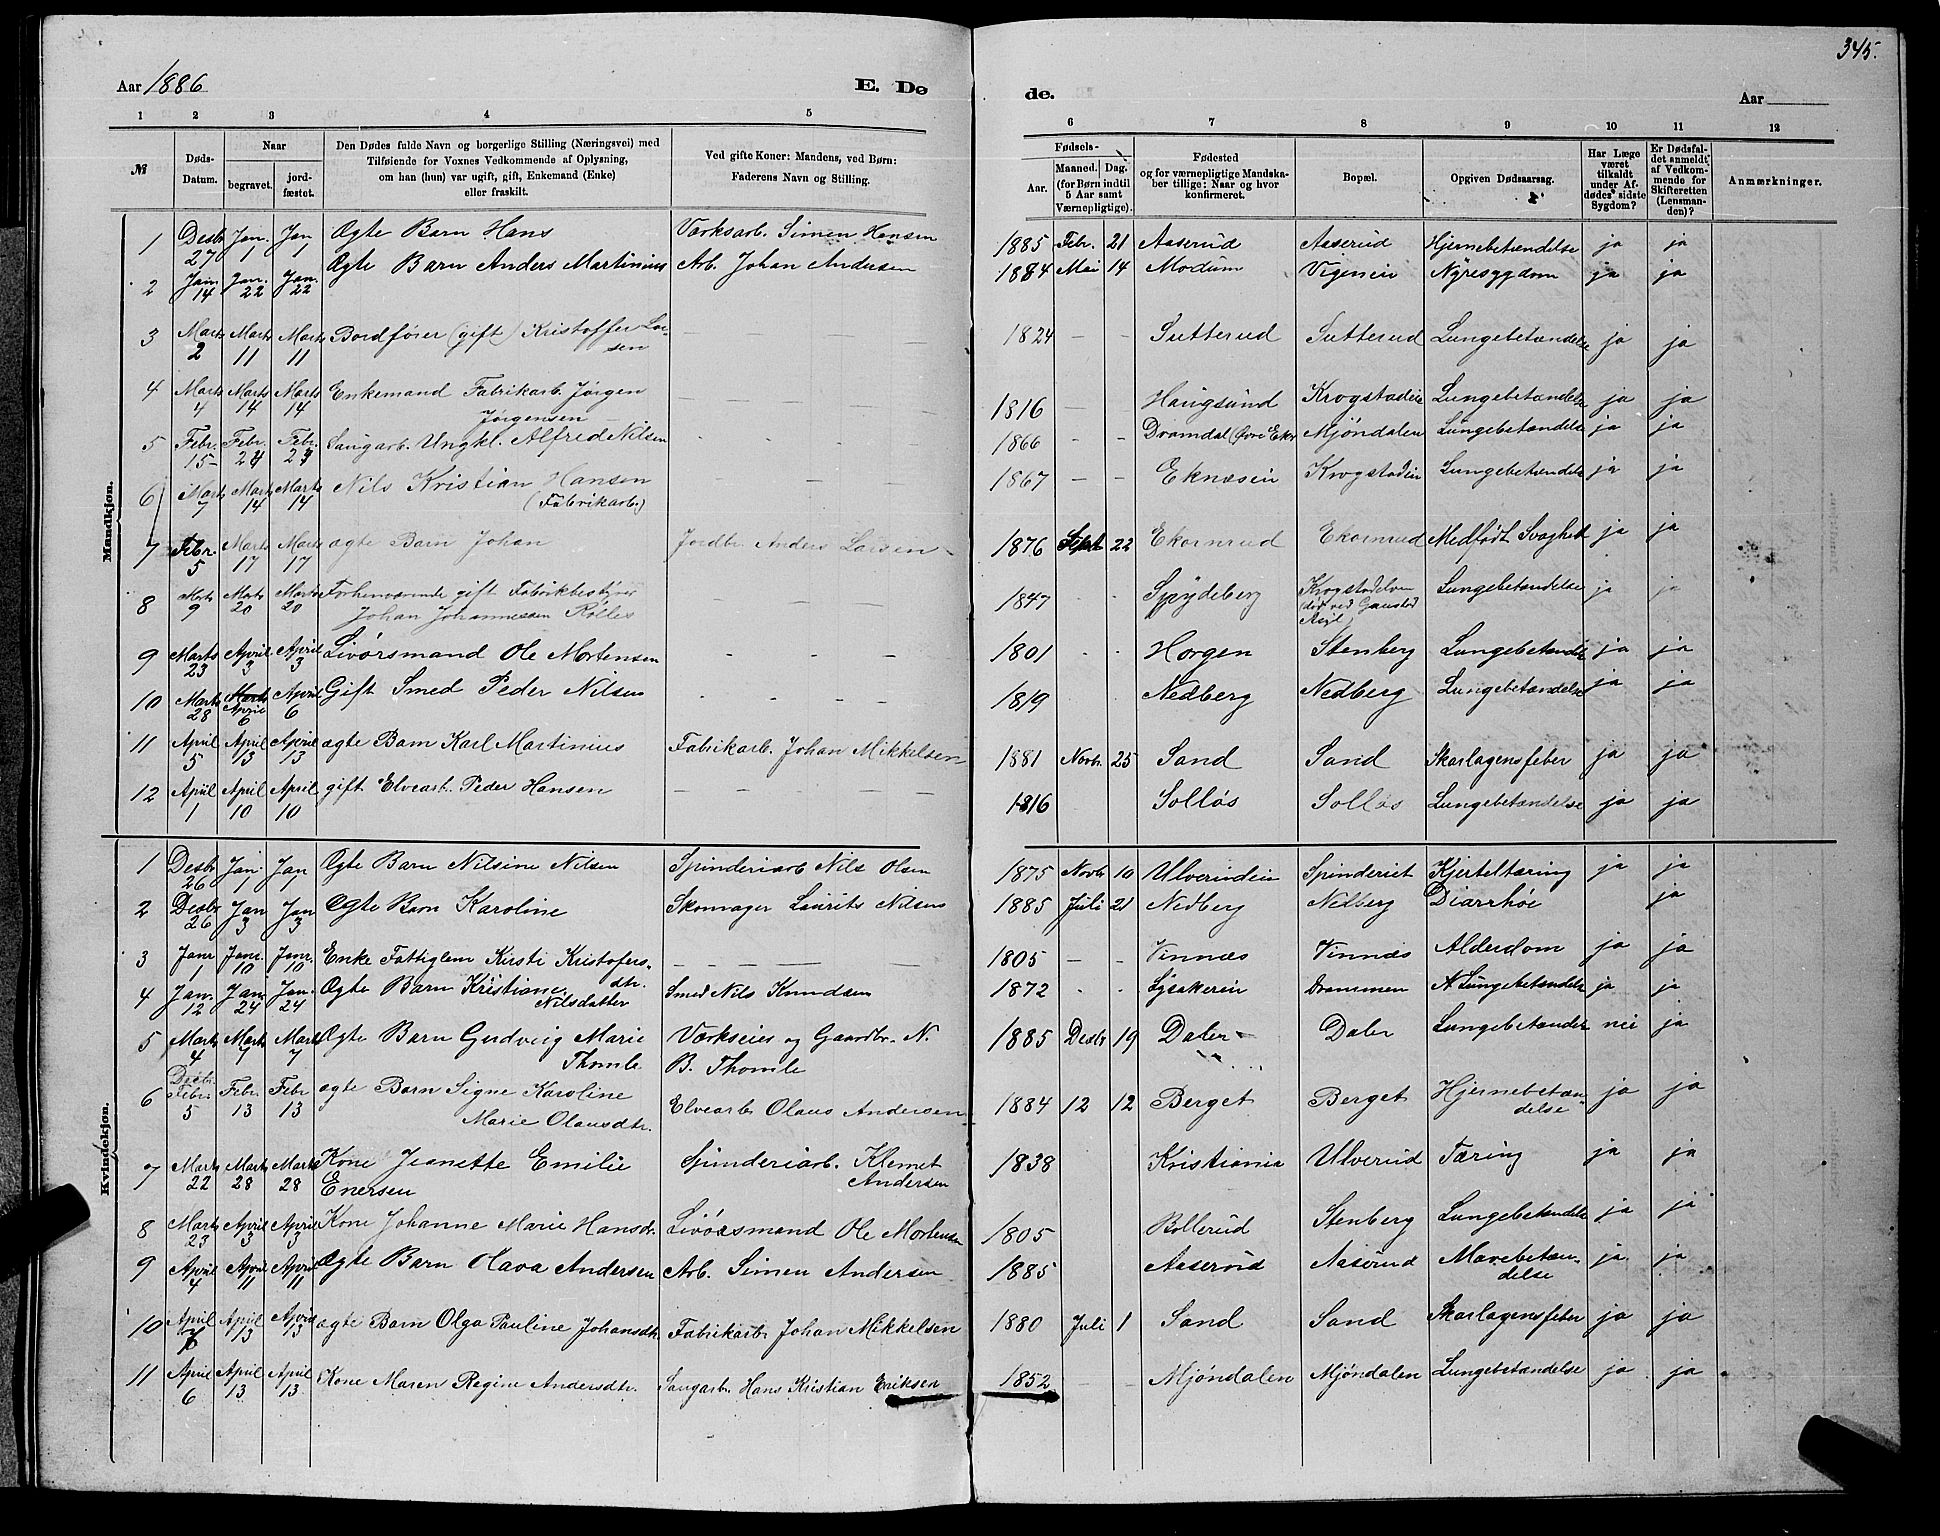 345.
Aar 1886 E. De de. Aar
1 2 3 4 5 6 7 8 9 10 11 12
№ Døds-Datum. Naar begravet. jord-fæstet. Den Dødes fulde Navn og borgerlige Stilling (Næringsvei) med Tilføiende for Voxnes Vedkommende af Oplysning, om han (hun) var ugift, gift, Enkemand (Enke) eller fraskilt. Ved gifte Koner: Mandens, ved Børn: Faderens Navn og Stilling. Fødsels- Aar. Maaned. Dag. (for Børn indtil 5 Aar samt Værnepligtige). Fødested og for værnepligtige Mandskaber tillige: Naar og hvor konfirmeret. Bopæl. Opgiven Dødsaarsag. Har Læge været tilkaldt under Afdødes sidste Sygdom? Er Dødsfaldet anmeldt af Vedkommende for Skifteretten (Lensmanden)? Anmærkninger.
Mandkjøn.
1 Desbr 27 Jan. 1 Jan 1 Ægte Barn Hans Værksarb. Simen Hansen 1885 Febr. 21 Aaserud Aaserud Hjernebetændelse ja ja
2 Jan. 14 Jan. 22 Jan. 22 Ægte Barn Anders Martinius Arb. Johan Andersen 1884 Mai 14 Modum Vigeneie Nyresygdom ja ja
3 Marts 2 Marts 11 Marts 11 Bordfører (gift) Kristoffer Larsen — — — — 1824 — — Sutterud Sutterud Lungebetændelse ja ja
4 Marts 4 Marts 14 Marts 14 Enkemand Fabrikarb. Jørgen Jørgensen — — — — 1816 — — Haugsund Krogstadeie Lungebetændelse ja ja
5 Febr. 15 Febr. 24 Febr. 24 Saugarb. Ungkl. Alfred Nilsen - - - - 1866 - - Dramdal (Øvre Eker Mjøndalen Lungebetændelse ja ja
6 Marts 7 Marts 14 Marts 14 Nils Kristian Hansen (Fabrikarb.) 1867 — — Eknæseie Krogstadeie Lungebetændelse ja ja
7 Febr. 5 Marts 17 Marts 17 ægte Barn Johan Jordbr. Anders Larsen 1876 Sept 22 Ekornrud Ekornrud Medfødt Svaghed ja ja
8 Marts 9 Marts 20 Marts 20 Forhenværende gift Fabrikbestyrer Johan Johannesen Rolles — — — — 1847 - - Spydeberg Krogstadelven (død ved Gaustad Asyl) Lungebetændelse ja ja
9 Marts 23 April 3 April 3 Livørsmand Ole Mortensen - - - - 1801 - - Horgen Stenberg Lungebetændelse ja ja
10 Marts 28 Marts April 6 April 6 Gift Smed Peder Nilsen - - - - 1819 Nedberg Nedberg Lungebetændelse ja ja
11 April 5 April 13 April 13 ægte Barn Karl Martinius Fabrikarb. Johan Mikkelsen 1881 Novbr. 25 Sand Sand Skarlagensfeber ja ja
12 April 1 April 10 April 10 gift Elvearb. Peder Hansen — — — — 1816 Solløs Solløs Lungebetændelse ja ja
Kvindekjøn.
1 Desbr 26 Jan. 1 Jan 1 Ægte Barn Nilsine Nilsen Spinderiarb Nils Olsen 1875 Novbr 10 Ulverudeie Spinderiet Kjerteltæring ja ja
2 Desbr 26 Jan 3 Jan 3 Ægte Barn Karoline Skomager Laurits Nilsen 1885 Juli 21 Nedberg Nedberg Diarrhøe ja
3 Janr 1 Janr. 10 Janr. 10 Enke Fattiglem Kirsti Kristofersdtr. — — — — 1805 — — Vinnæs Vinnæs Alderdom ja ja
4 Jan. 12 Jan. 24 Jan. 24 Ægte Barn Kristiane Nilsdatter Smed Nils Knudsen 1872 - - Lysakereie Drammen A. Lungebetændelse ja ja
5 Marts 4 Marts 7 Marts 7 Ægte Barn Gudveig Marie Thomle Værkseier og Gaardbr. N. B. Thomle 1885 Desbr 19 Daler Daler Lungebetændelse nei ja
6 Desbr. Febr. 5 Febr. 13 Febr 13 ægte Barn Signe Karoline Marie Olausdtr. Elvearb. Olaus Andersen 1884 12 12 Berget Berget Hjernebetændelse ja ja
7 Marts 22 Marts 28 Marts 28 Kone Jeanette Emilie Enersen Spinderiarb. Klemet Andersen 1838 Kristiania Ulverud Tæring ja ja
8 Marts 23 April 3 April 3 Kone Johanne Marie Hansdr. Livørsmand Ole Mortensen 1805 Bollerud Stenberg Lungebetændelse ja ja
9 April 4 April 11 April 11 Ægte Barn Olava Andersen Arb. Simen Andersen 1885 Aaserud Aaserud Mavebetændelse ja ja
10 April April 13 April 13 ægte Barn Olga Pauline Johansdtr. Fabrikarb. Johan Mikkelsen 1880 Juli 1 Sand Sand Skarlagensfeber ja ja
11 April 6 April 13 April 13 Kone Maren Regine Andersdtr. Saugarb. Hans Kristian Eriksen 1852 — — Mjøndalen Mjøndalen Lungebetændelse ja ja